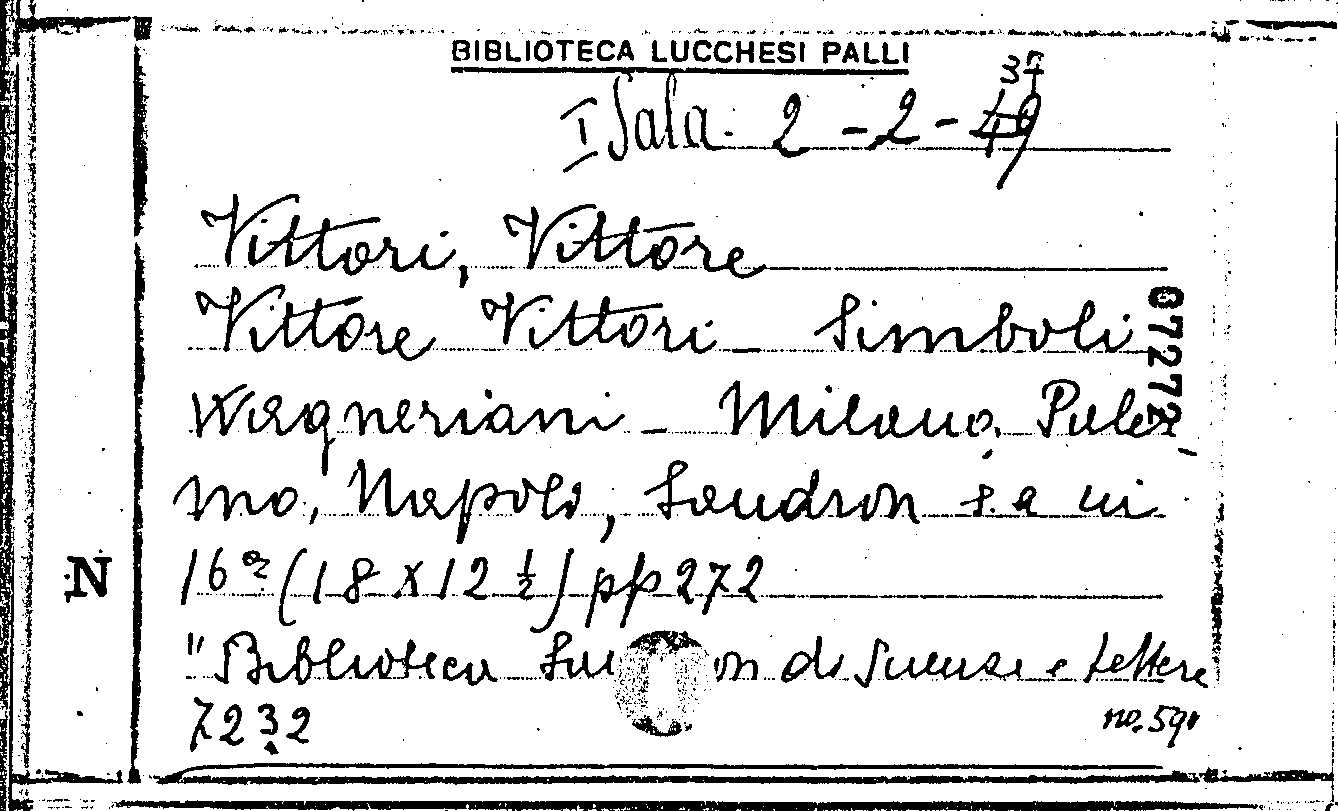 BIBLIOTECA LUCCHESI PALLI
37
I Sala. 2-2-49
Vittori, Vittore
Vittore Vittori - Simboli
Wagneriani - Milano, Paler
mo, Napoli, Sandron s.a in
16° (18 x 12 ½) pp 272
"Biblioteca Sandron di Scienze e Lettere
7232
no. 59
67272
N